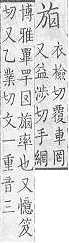 衣檢切覆車罔
又益涉切手網
博雅罩罕率也又憶笈
切又乙業切文一重音三